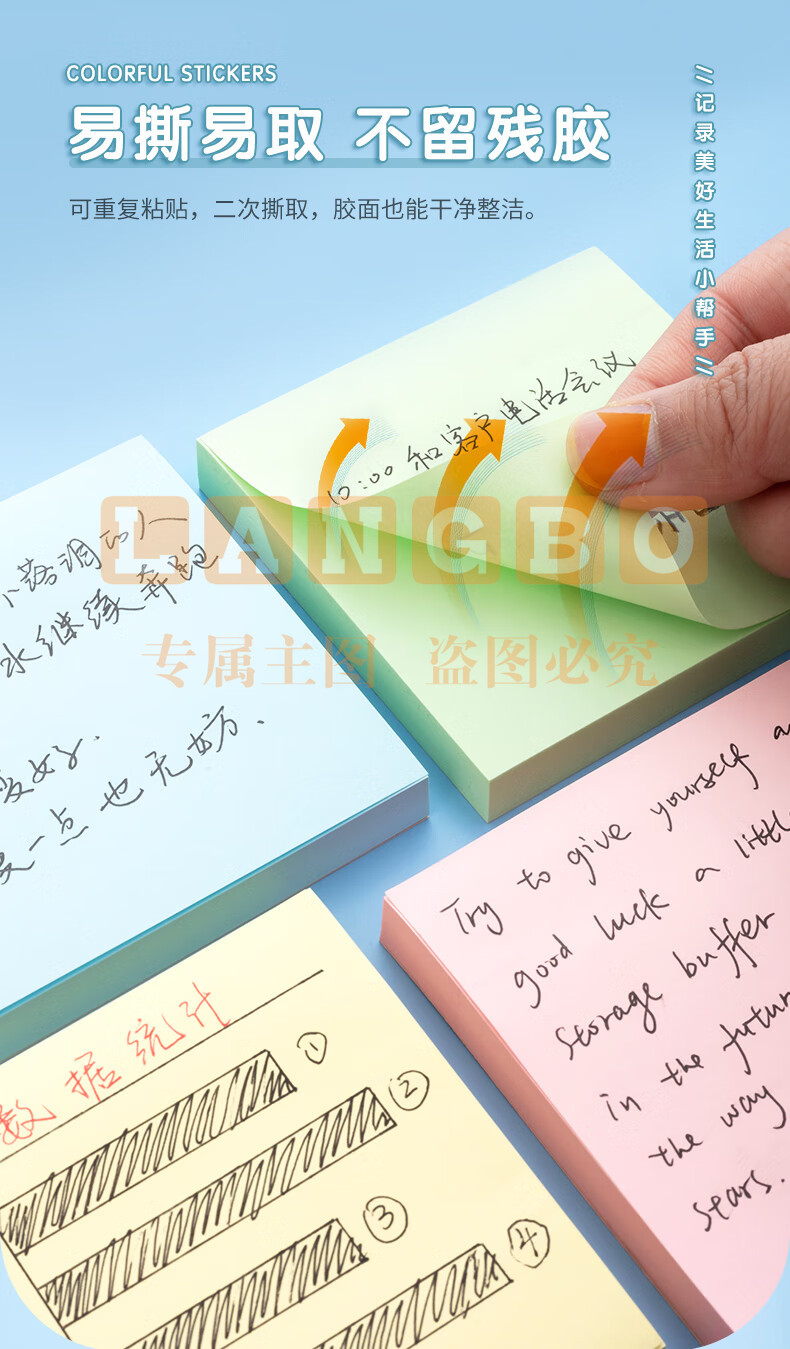 COLORFUL STICKERS
易撕易取 不留残胶
可重复粘贴，二次撕取，胶面也能干净整洁。
//记录美好生活小帮手//
10:00 和客户电话会议
LANGBO
专属主图 盗图必究
小落调的人
水继续奔跑
变好.
一点也无妨.
数据统计
①
②
③
④
Try to give yourself a
good luck a little
storage buffer
in the futur
the way
stars.